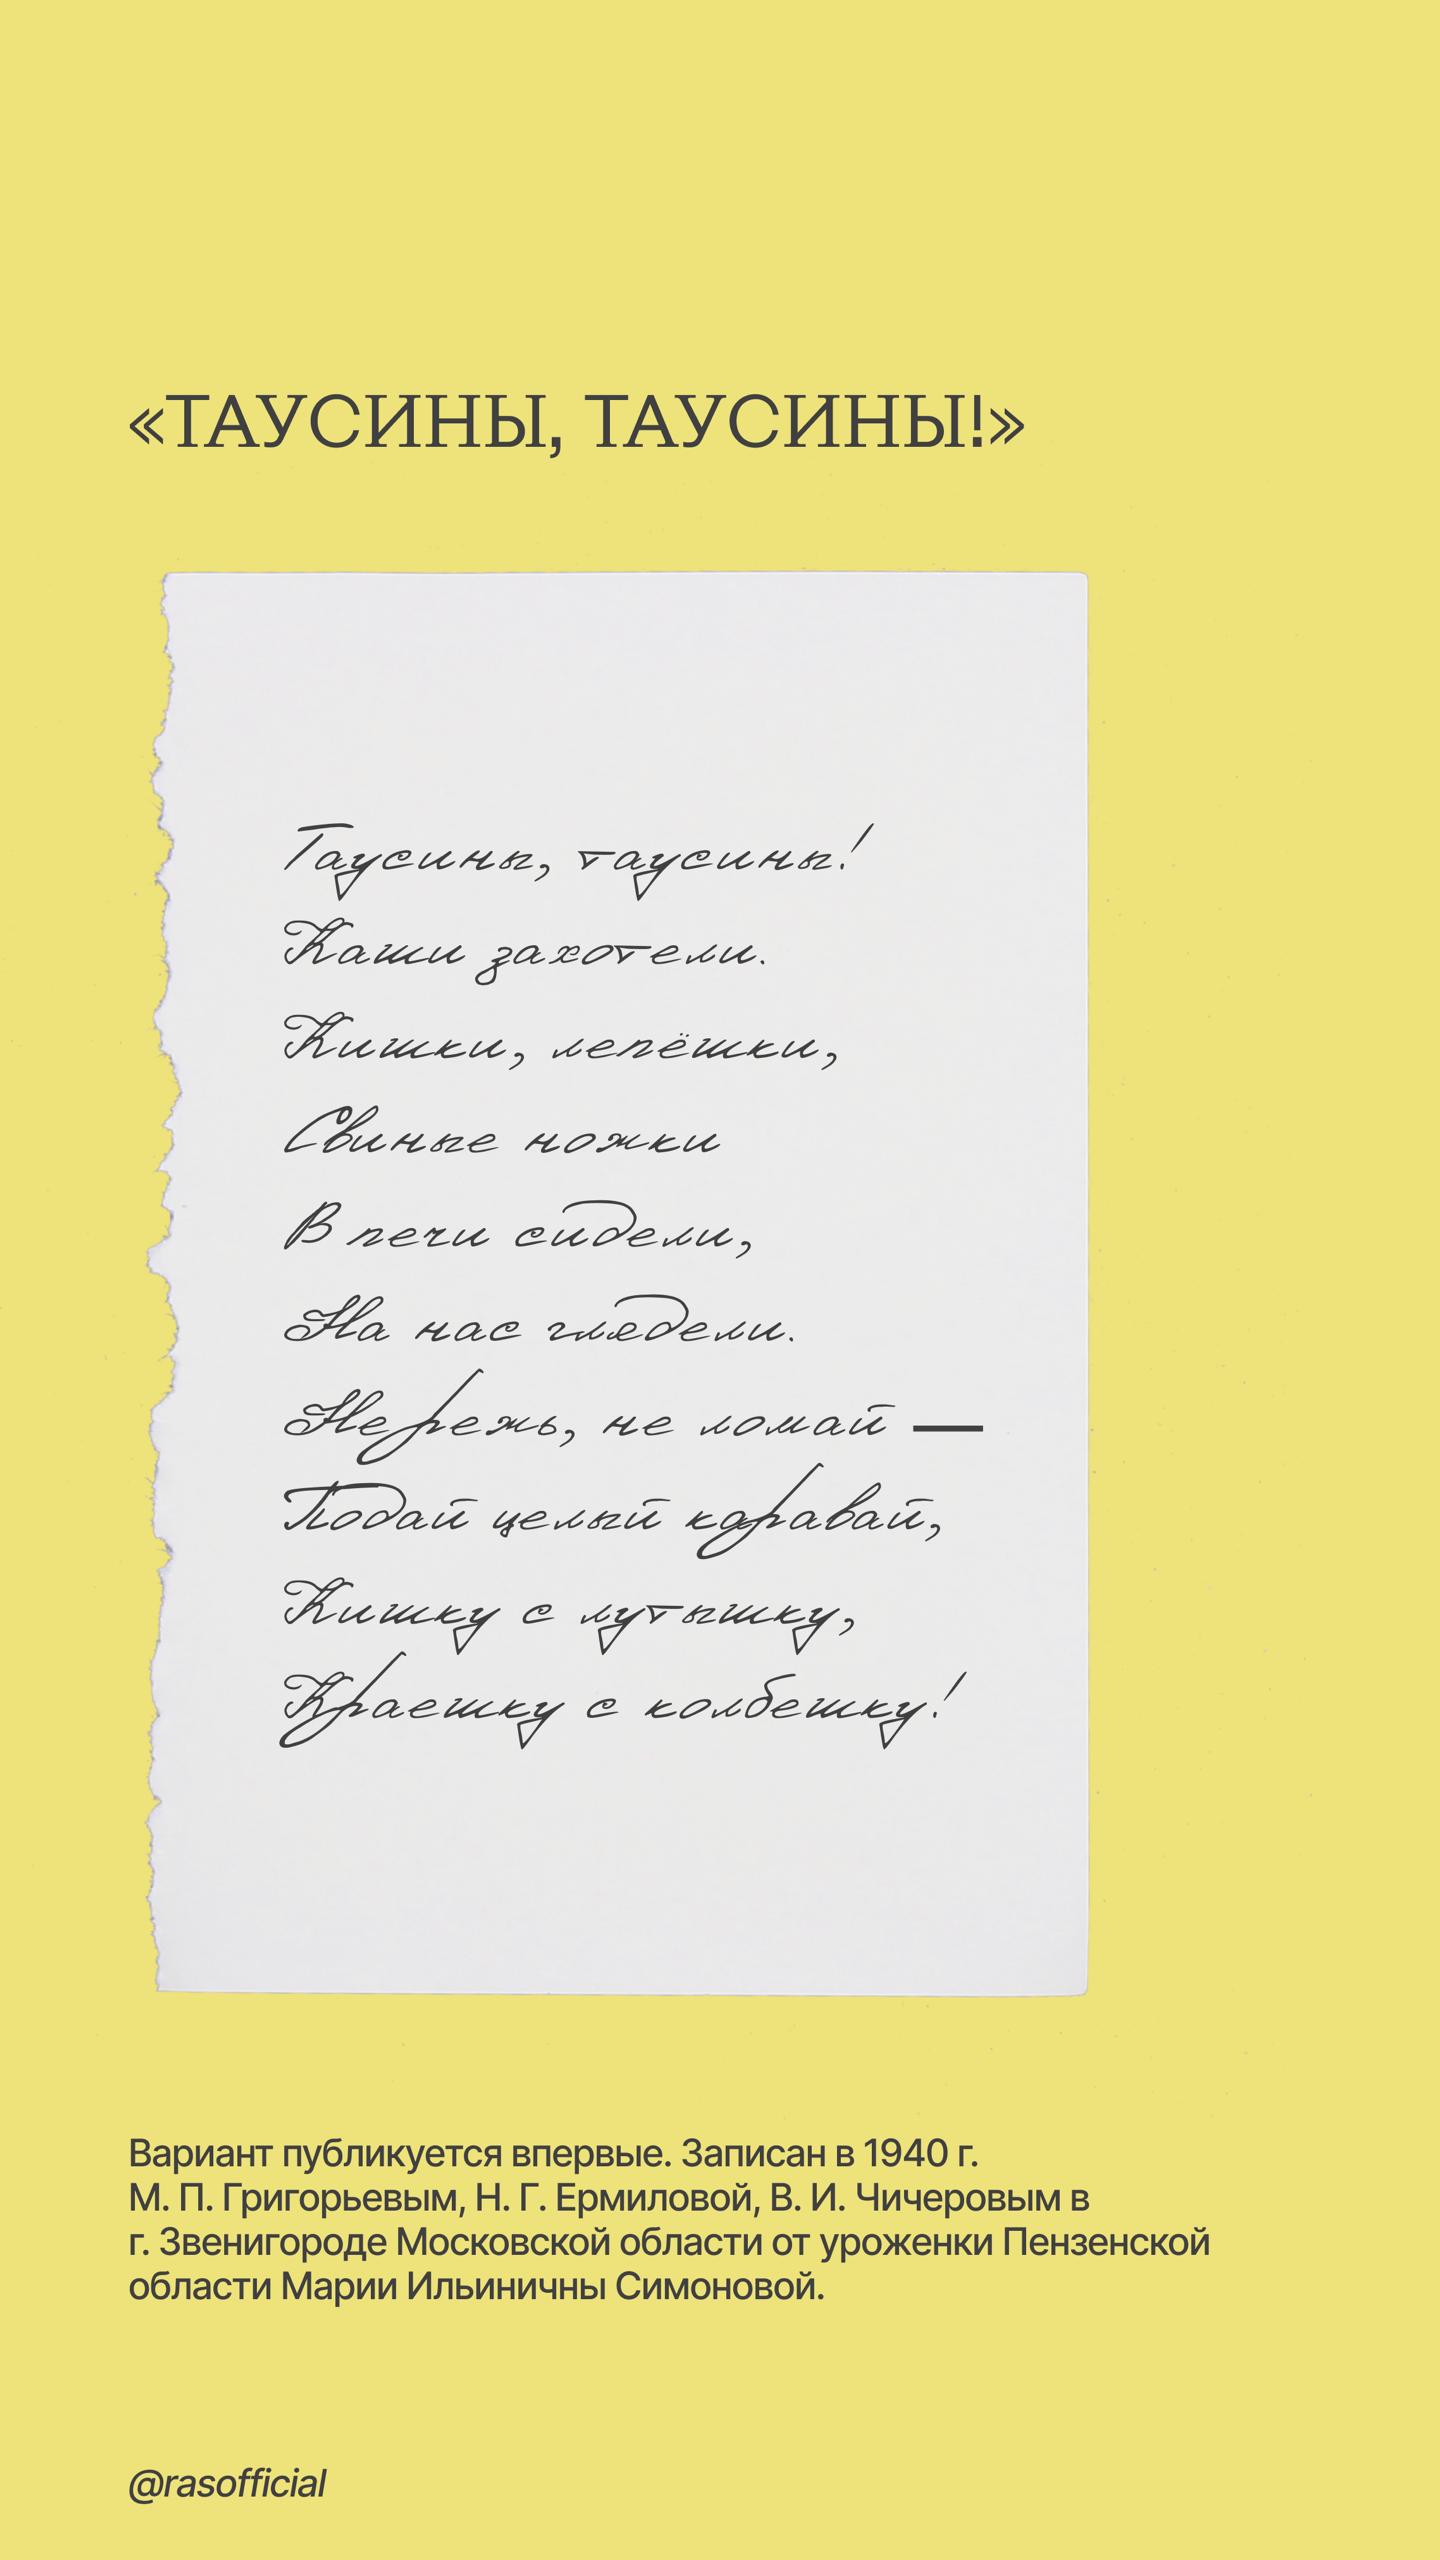 «ТАУСИНЫ, ТАУСИНЫ!»
Таусины, таусины!
Каши захотели.
Кишки, лепёшки,
Свиные ножки
В печи сидели,
На нас глядели.
Не режь, не ломай —
Подай целый каравай,
Кишку с лутышку,
Краешку с колбешку!
Вариант публикуется впервые. Записан в 1940 г.
М. П. Григорьевым, Н. Г. Ермиловой, В. И. Чичеровым в
г. Звенигороде Московской области от уроженки Пензенской
области Марии Ильиничны Симоновой.
@rasofficial